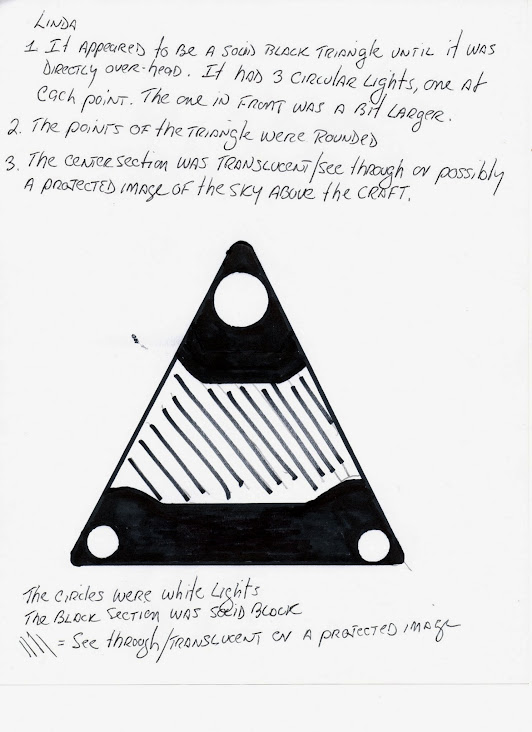 LINDA
1. It APPEARED to BE A SOLID BLACK TRIANGLE UNTIL it WAS
DIRECTLY OVER-HEAD. It HAD 3 CIRCULAR LIGHTS, ONE At
EACH POINT. The ONE IN FRONT WAS A Bit LARGER.
2. The POINTS OF the TRIANGLE WERE ROUNDED
3. The CENTER SECTION WAS TRANSLUCENT/SEE through OR possibly
A PROJECTED IMAGE OF the SKY ABOVE the CRAFT.
The CIRCLES WERE white LIGHTS
The BLACK SECTION WAS SOLID BLACK
= SEE through/TRANSLUCENT OR A PROJECTED IMAGE